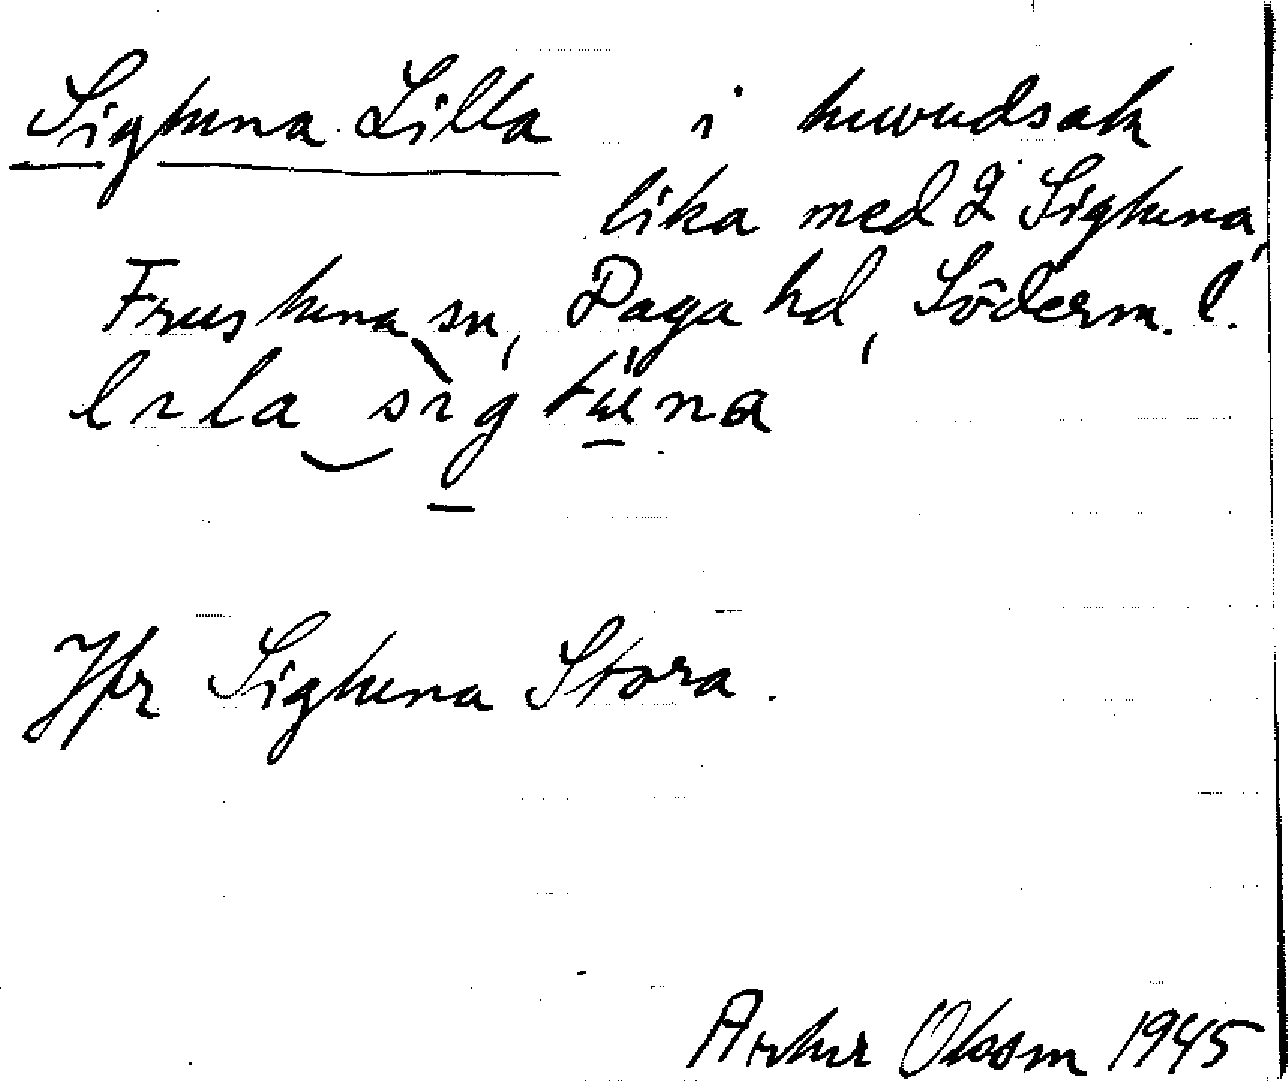 Sigtuna Lilla i huvudsak
lika med 2 Sigtuna,
Frustuna sn, Daga hd, Söderm. l.
lɩla sɩgtúna
Jfr Sigtuna Stora.
Artur Olsson 1945